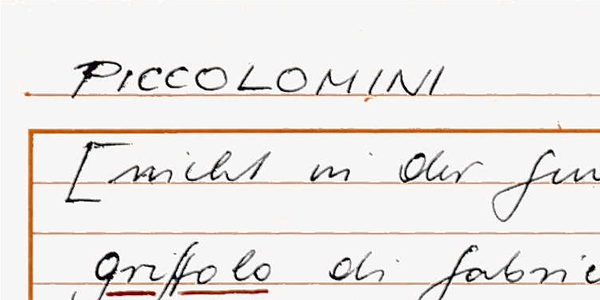 PICCOLOMINI
[nicht in der
griffolo di fabrie